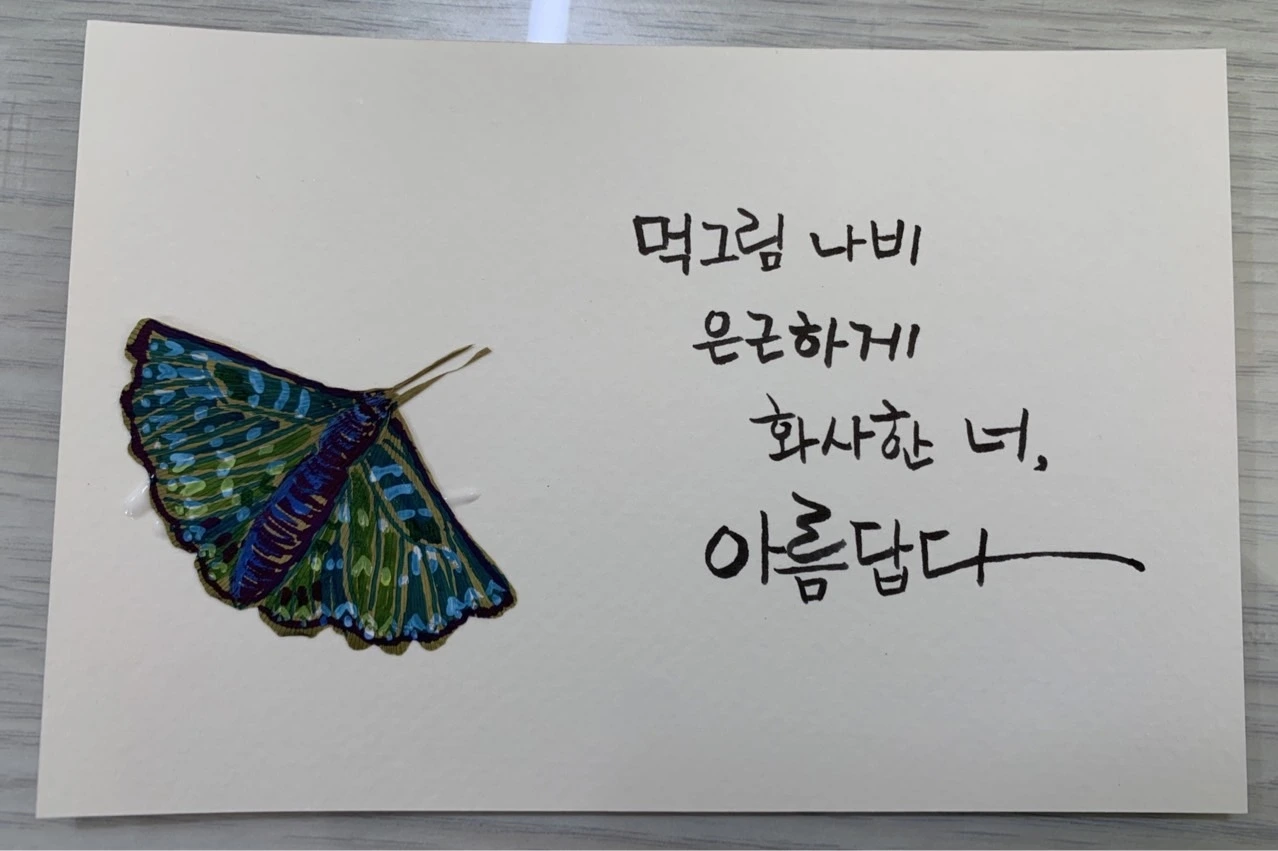 먹그림 나비
은근하게
화사한 너,
아름답다